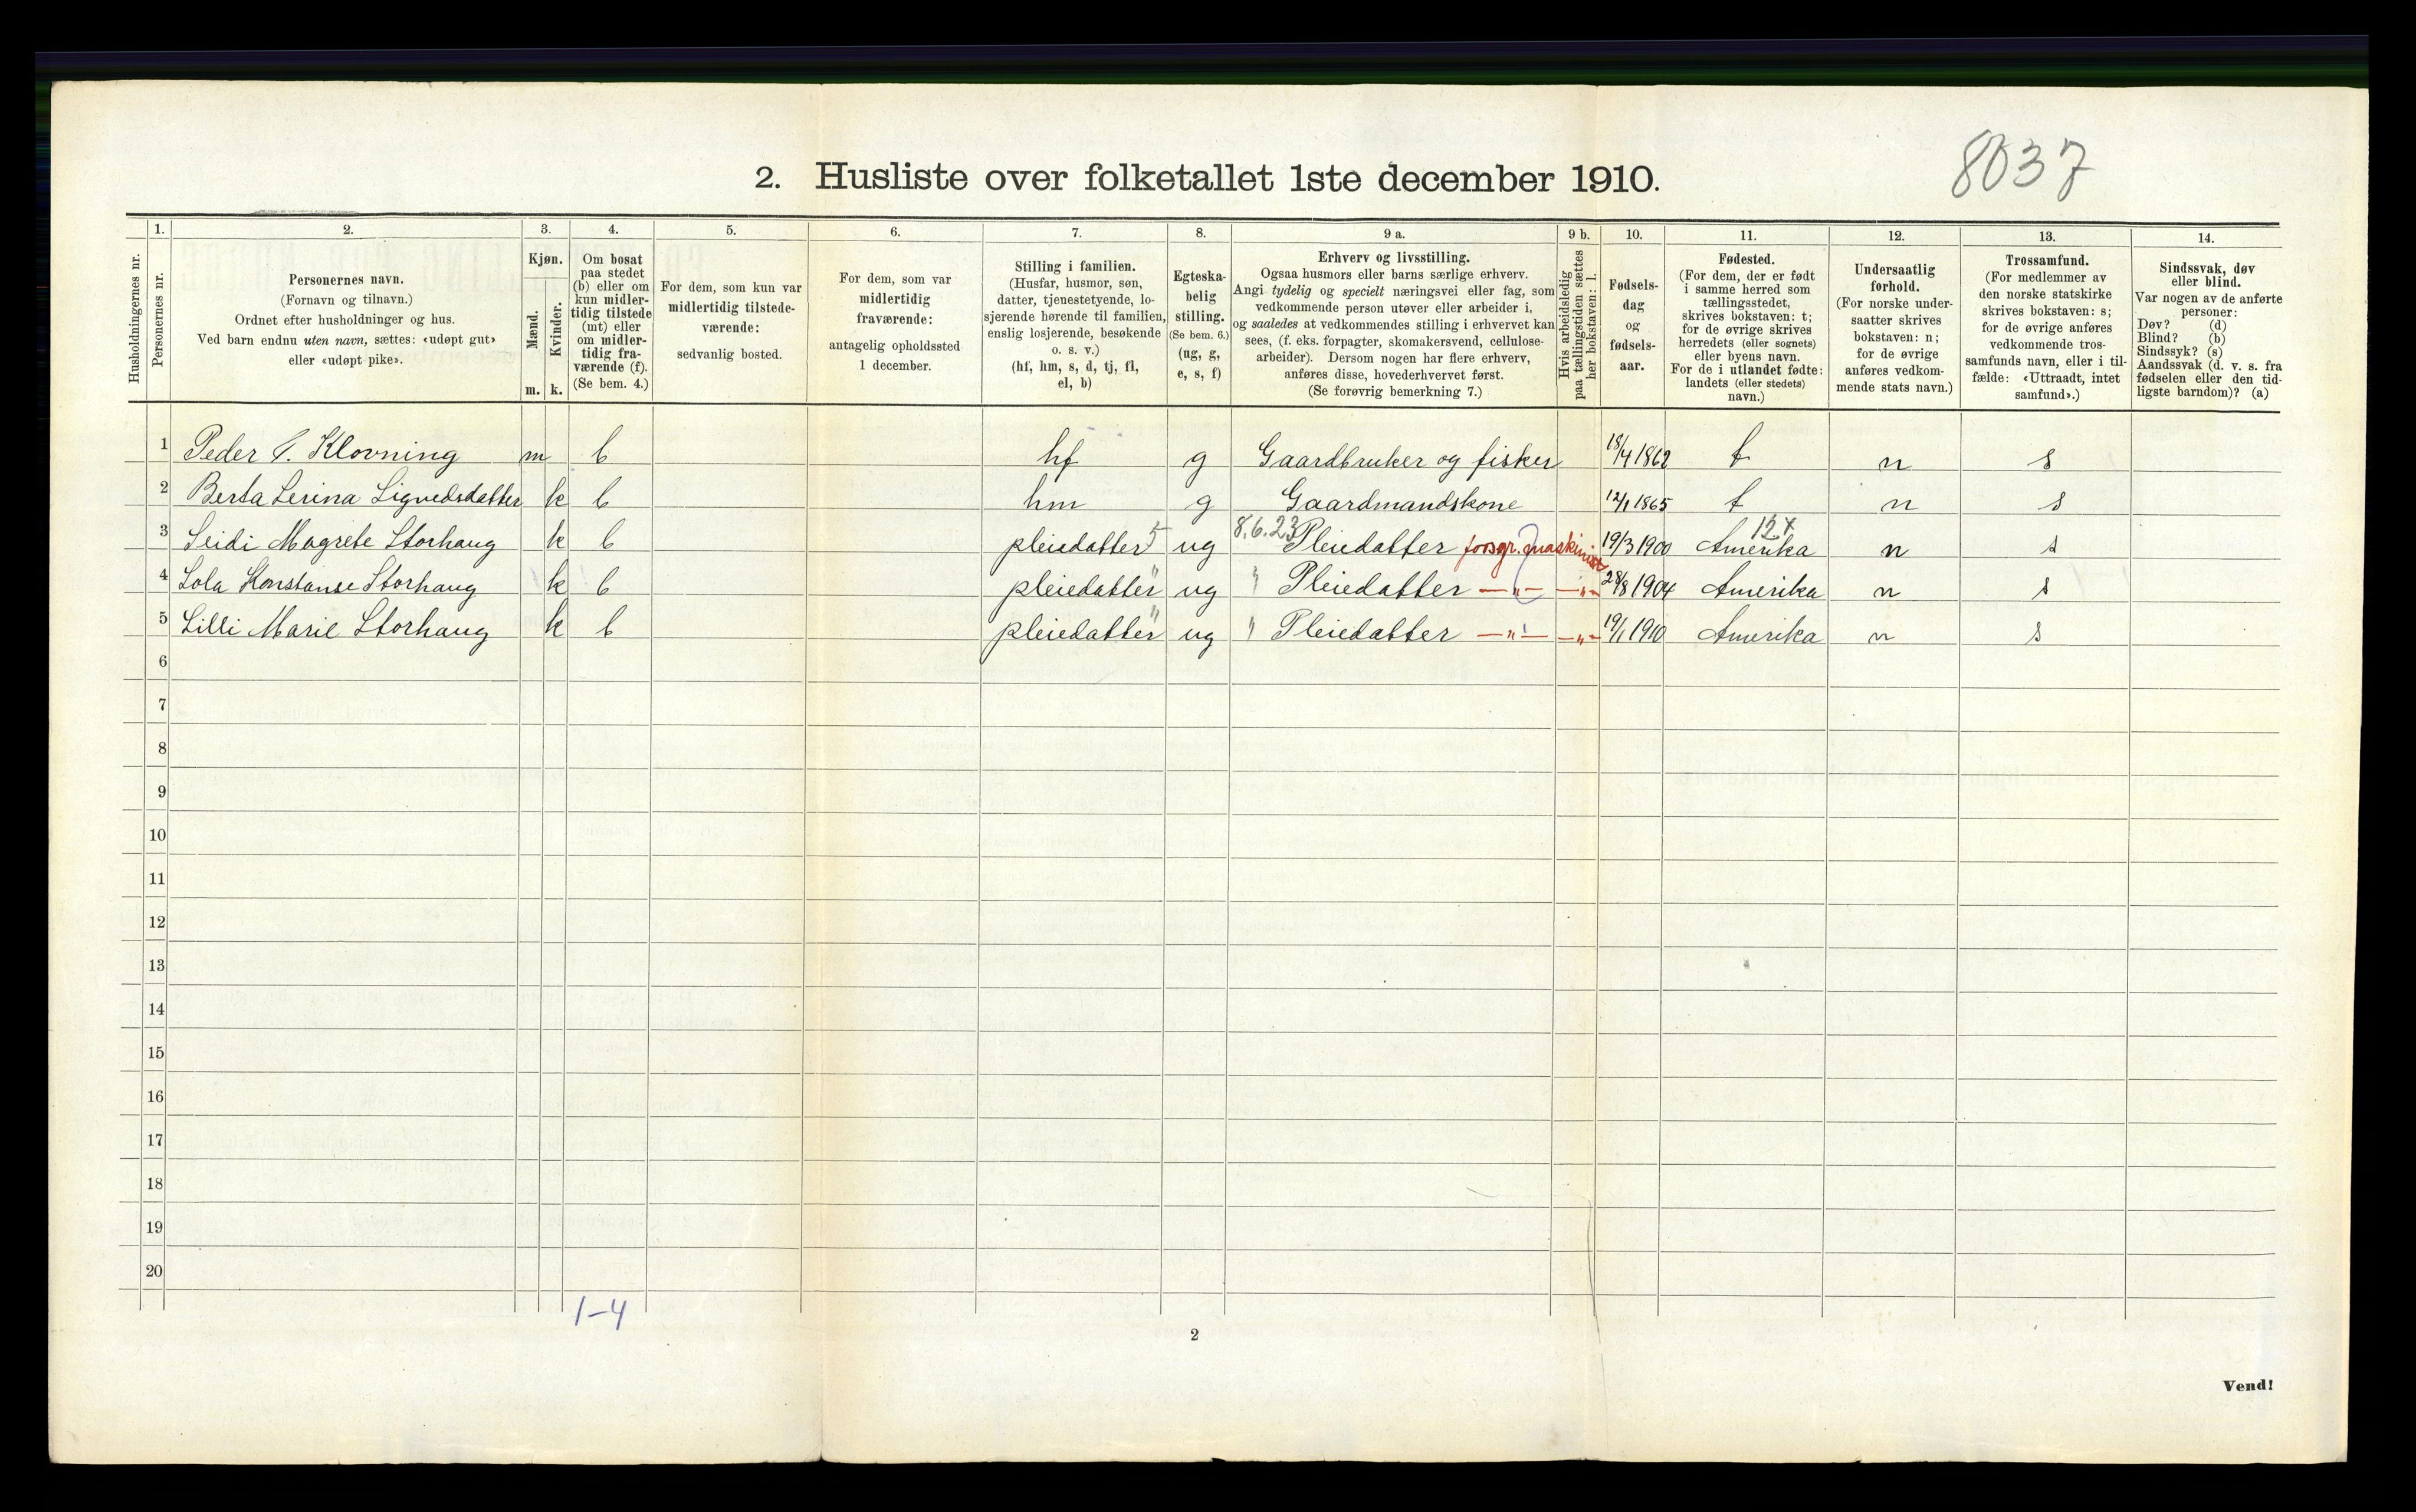 8037
2. Husliste over folketallet 1ste december 1910.
Husholdningernes nr.
1.
Personernes nr.
2.
Personernes navn.
(Fornavn og tilnavn.)
Ordnet efter husholdninger og hus.
Ved barn endnu uten navn, sættes: «udøpt gut»
eller «udøpt pike».
3.
Kjøn.
Mænd.
Kvinder.
m. k.
4.
Om bosat
paa stedet
(b) eller om
kun midler-
tidig tilstede
(mt) eller
om midler-
tidig fra-
værende (f).
(Se bem. 4.)
5.
For dem, som kun var
midlertidig tilstede-
værende:
sedvanlig bosted.
6.
For dem, som var
midlertidig
fraværende:
antagelig opholdssted
1 december.
7.
Stilling i familien.
(Husfar, husmor, søn,
datter, tjenestetyende, lo-
sjerende hørende til familien,
enslig losjerende, besøkende
o. s. v.)
(hf, hm, s, d, tj, fl,
el, b)
8.
Egteska-
belig
stilling.
(Se bem. 6.)
(ug, g,
e, s, f)
9 a.
Erhverv og livsstilling.
Ogsaa husmors eller barns særlige erhverv.
Angi tydelig og specielt næringsvei eller fag, som
vedkommende person utøver eller arbeider i,
og saaledes at vedkommendes stilling i erhvervet kan
sees, (f. eks. forpagter, skomakersvend, cellulose-
arbeider). Dersom nogen har flere erhverv,
anføres disse, hovederhvervet først.
(Se forøvrig bemerkning 7.)
9 b.
Hvis arbeidsledig
paa tællingstiden sættes
her bokstaven: l.
10.
Fødsels-
dag
og
fødsels-
aar.
11.
Fødested.
(For dem, der er født
i samme herred som
tællingsstedet,
skrives bokstaven: t;
for de øvrige skrives
herredets (eller sognets)
eller byens navn.
For de i utlandet fødte:
landets (eller stedets)
navn.)
12.
Undersaatlig
forhold.
(For norske under-
saatter skrives
bokstaven: n;
for de øvrige
anføres vedkom-
mende stats navn.)
13.
Trossamfund.
(For medlemmer av
den norske statskirke
skrives bokstaven: s;
for de øvrige anføres
vedkommende tros-
samfunds navn, eller i til-
fælde: «Uttraadt, intet
samfund».)
14.
Sindssvak, døv
eller blind.
Var nogen av de anførte
personer:
Døv? (d)
Blind? (b)
Sindssyk? (s)
Aandssvak (d. v. s. fra
fødselen eller den tid-
ligste barndom)? (a)
1 Peder Klovning m b hf g Gaardbruker og fisker 18/4 1862 t n s
2 Berta Serina Sigvedsdatter k b hm g Gaardmandskone 12/1 1865 t n s
8.6.23 127
3 Seidi Magrete Storhaug k b pleiedatter 5 ug Pleiedatter forsgr. maskinist 19/3 1900 Amerika n s
4 Lola Konstanse Storhaug k b pleiedatter " ug " Pleiedatter —"— —"— 28/8 1904 Amerika n s
5 Lilli Marie Storhaug k b pleiedatter " ug " Pleiedatter —"— —"— 19/1 1910 Amerika n s
6
7
8
9
10
11
12
13
14
15
16
17
18
19
20
1-4
2
Vend!